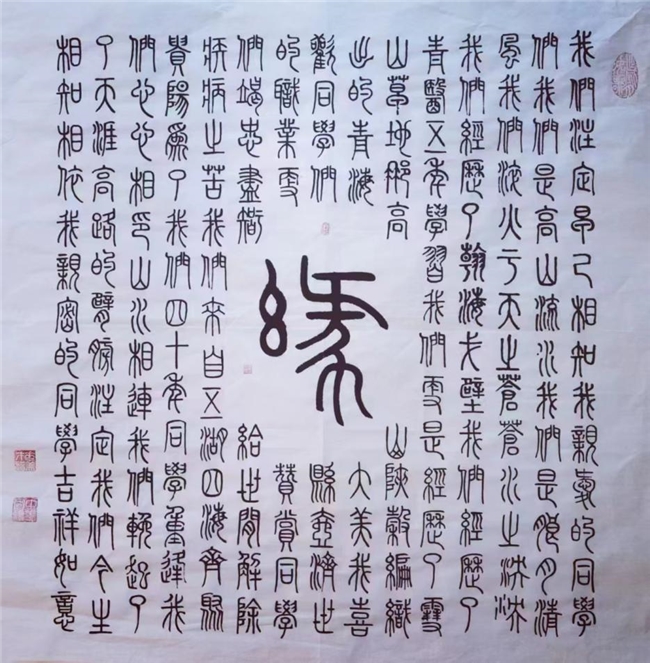 我們注定早已相知我親愛的同學
們我們是高山流水我們是朗月清
風我們亏天之蒼蒼水之泱泱
我們經歷了瀚海戈壁我們經歷了
青醫五年學習我們更是經歷了雪
山草地那高山陝穀編織
出的青海大美我喜
歡同學們縣壺濟世
的職業更贊賞同學
們竭忠盡智給世間解除
疾病之苦我們來自五湖四海齊聚
貴陽爲了我們四十年同學重逢我
們心心相印山水相連我們輓起了
了天涯高路的臂膀注定我們今生
相知相依我親密的同學吉祥如意
緣